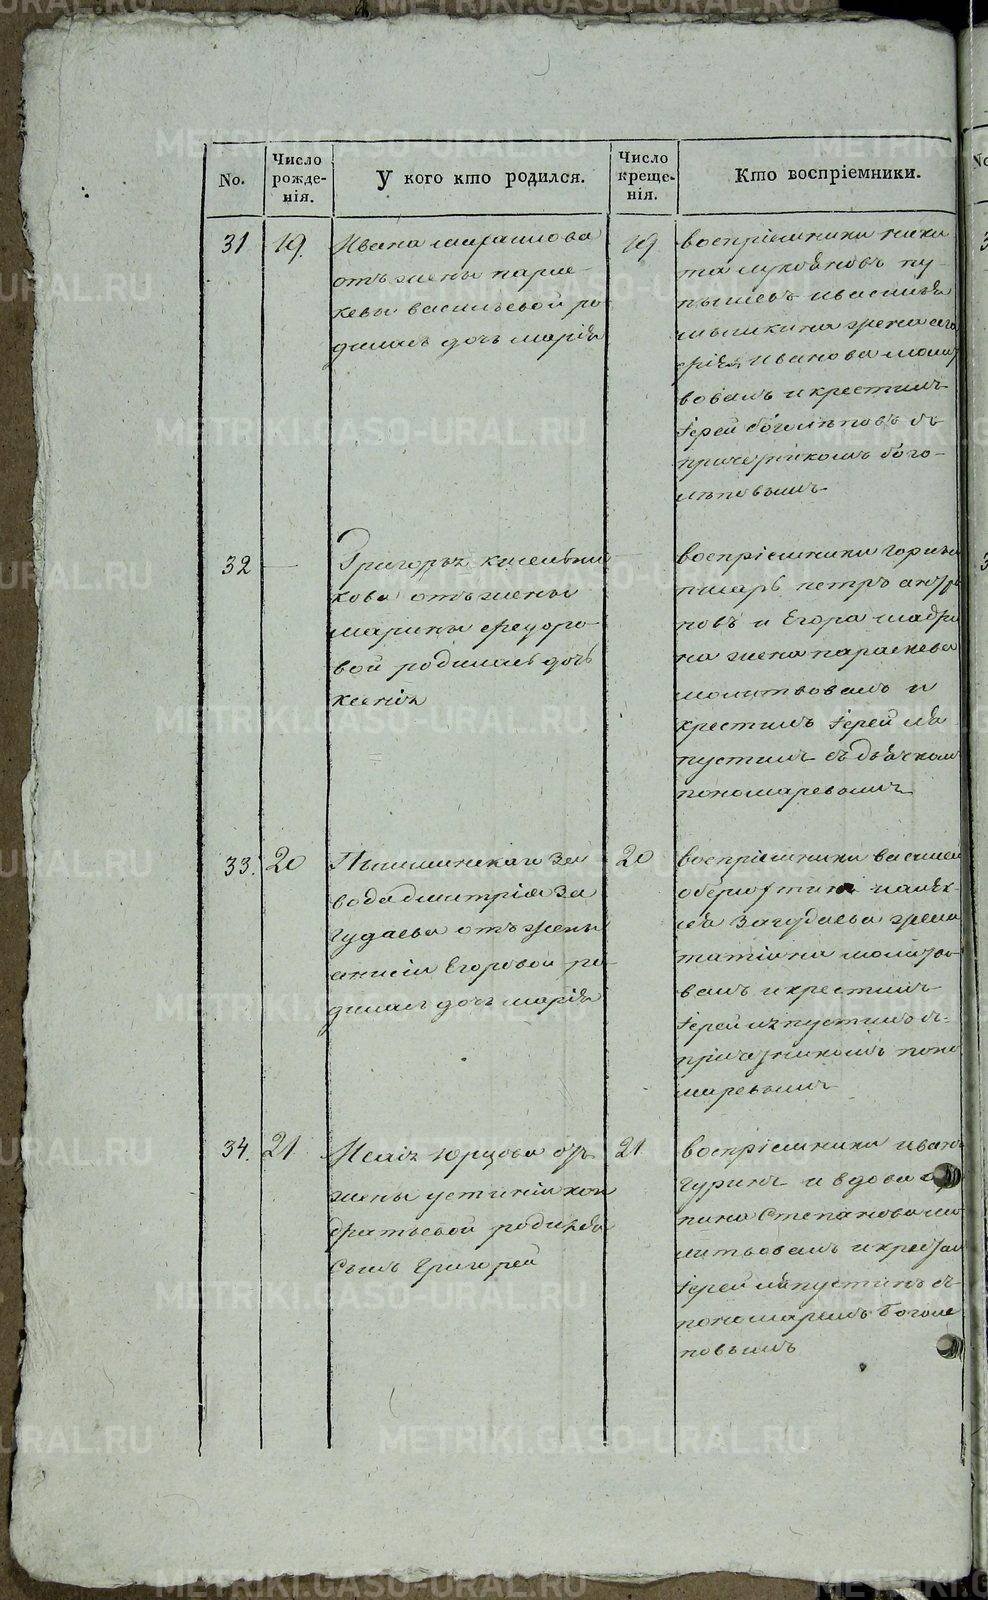 No.
Число рожденія.
У кого кто родился.
Число крещенія.
Кто воспріемники.
31
19.
Ивана
отъ жены параске-
кевы васильевой ро
дилась дочь марія
19
воспріемники ники
та лукояновъ пу-
пышевъ и
жена
Иванова молит
вовалъ и крестилъ
Іерей боголѣповъ съ
причетникомъ бого-
лѣповымъ
32
Григорья
кова отъ жены
марины федоро-
вой родилась дочь
ксенія
воспріемники горный
писарь петръ
новъ и Егора шадри
на жена параскева
молитвовалъ и
крестилъ Іерей ла
пустинъ съ дьячкомъ
пономаревымъ
33.
20
Пышминскаго за
вода дмитрія за
гудаева отъ жены
анисіи Егоровой ро
дилась дочь марія
20
воспріемники василей
загудаева жена
молитво-
валъ и крестилъ
Іерей лапустинъ съ
причетникомъ поно
маревымъ
34.
21
Исаія юрцова отъ
жены устиніи кон
дратьевой родился
сынъ григорей
21
воспріемники иванъ
гуринъ и вдова
Степанова мо
литвовалъ и крестилъ
Іерей лапустинъ съ
пономаремъ боголе
повымъ
METRIKI.GASO-URAL.RU